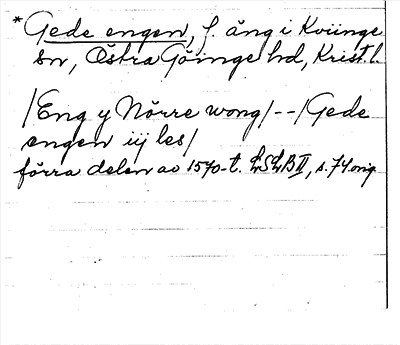 *Gede engen, f. äng i Kviinge
sn, Östra Göinge hd, Krist. l.
/Eng y Nörre wong/--/Gede
engen iij les/
förra delen av 1570-t. LSLB II, s. 74 orig.